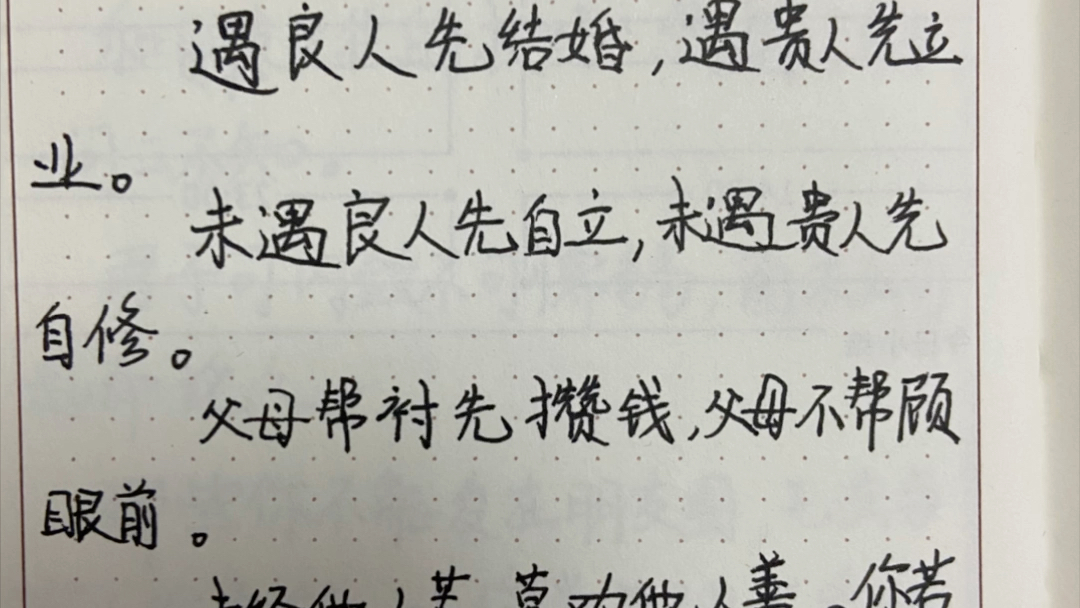 遇良人先结婚,遇贵人先立
业。
未遇良人先自立,未遇贵人先
自修。
父母帮衬先攒钱,父母不帮顾
眼前。
未经他人苦,莫劝他人善。你若